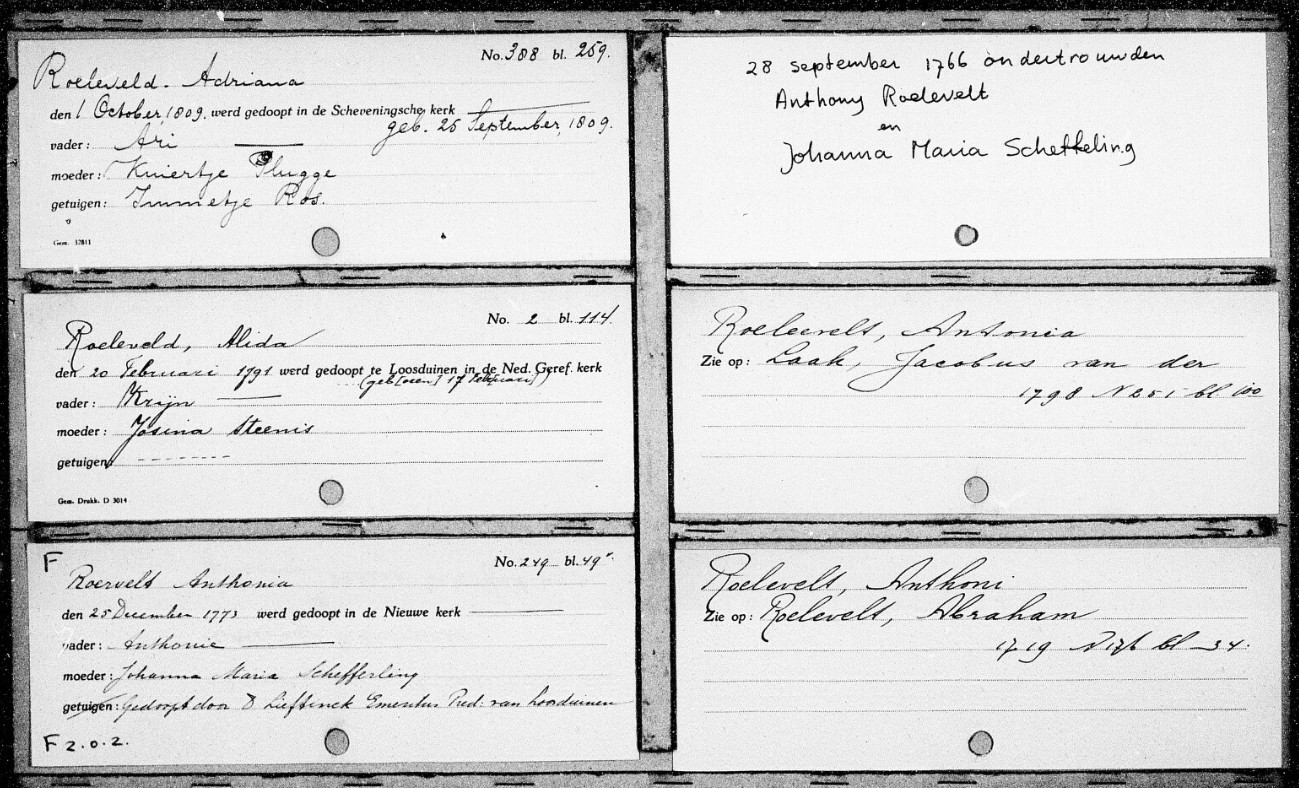 No. 388 bl. 259.
Roeleveld. Adriana
den 1 October, 1809. werd gedoopt in de Scheveningsche kerk
geb. 25 September, 1809.
vader: Ari
moeder: Kniertje Plugge
getuigen: Immetje Ros.
Gem. 32811
No. 2 bl. 114.
Roeleveld, Alida
den 20 Februari 1791 werd gedoopt te Loosduinen in de Ned. Geref. kerk
(geb[oren] 17 Februari)
vader: Krijn
moeder: Josina Steenis
getuigen:
Gem. Drukk. D 3014
F
No. 249 bl. 49
Roervelt Anthonia
den 25 December 1773 werd gedoopt in de Nieuwe kerk
vader: Anthonie
moeder: Johanna Maria Schefferling
getuigen: Gedoopt door D Lieftinck Emeritus Pred: van Loosduinen
F 2.0.2.
28 september 1766 ondertrouwden
Anthony Roelevelt
en
Johanna Maria Scheffeling
Roelevelt, Antonia
Zie op: Laak, Jacobus van der
1798 N 251 bl. 100
Roelevelt, Anthoni
Zie op: Roelevelt, Abraham
1719 N 176 bl 34.